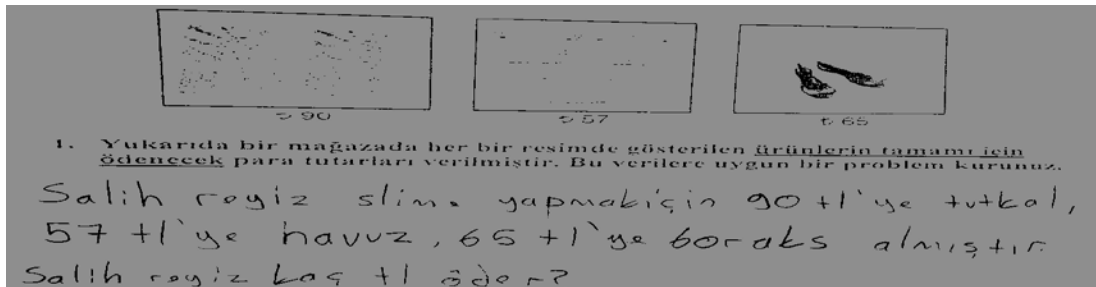 ₺ 90 ₺ 57 ₺ 65
1. Yukarıda bir mağazada her bir resimde gösterilen ürünlerin tamamı için
ödenecek para tutarları verilmiştir. Bu verilere uygun bir problem kurunuz.
Salih reyiz slime yapmak için 90 tl'ye tutkal,
57 tl'ye havuz, 65 tl'ye boraks almıştır.
Salih reyiz kaç tl öder?